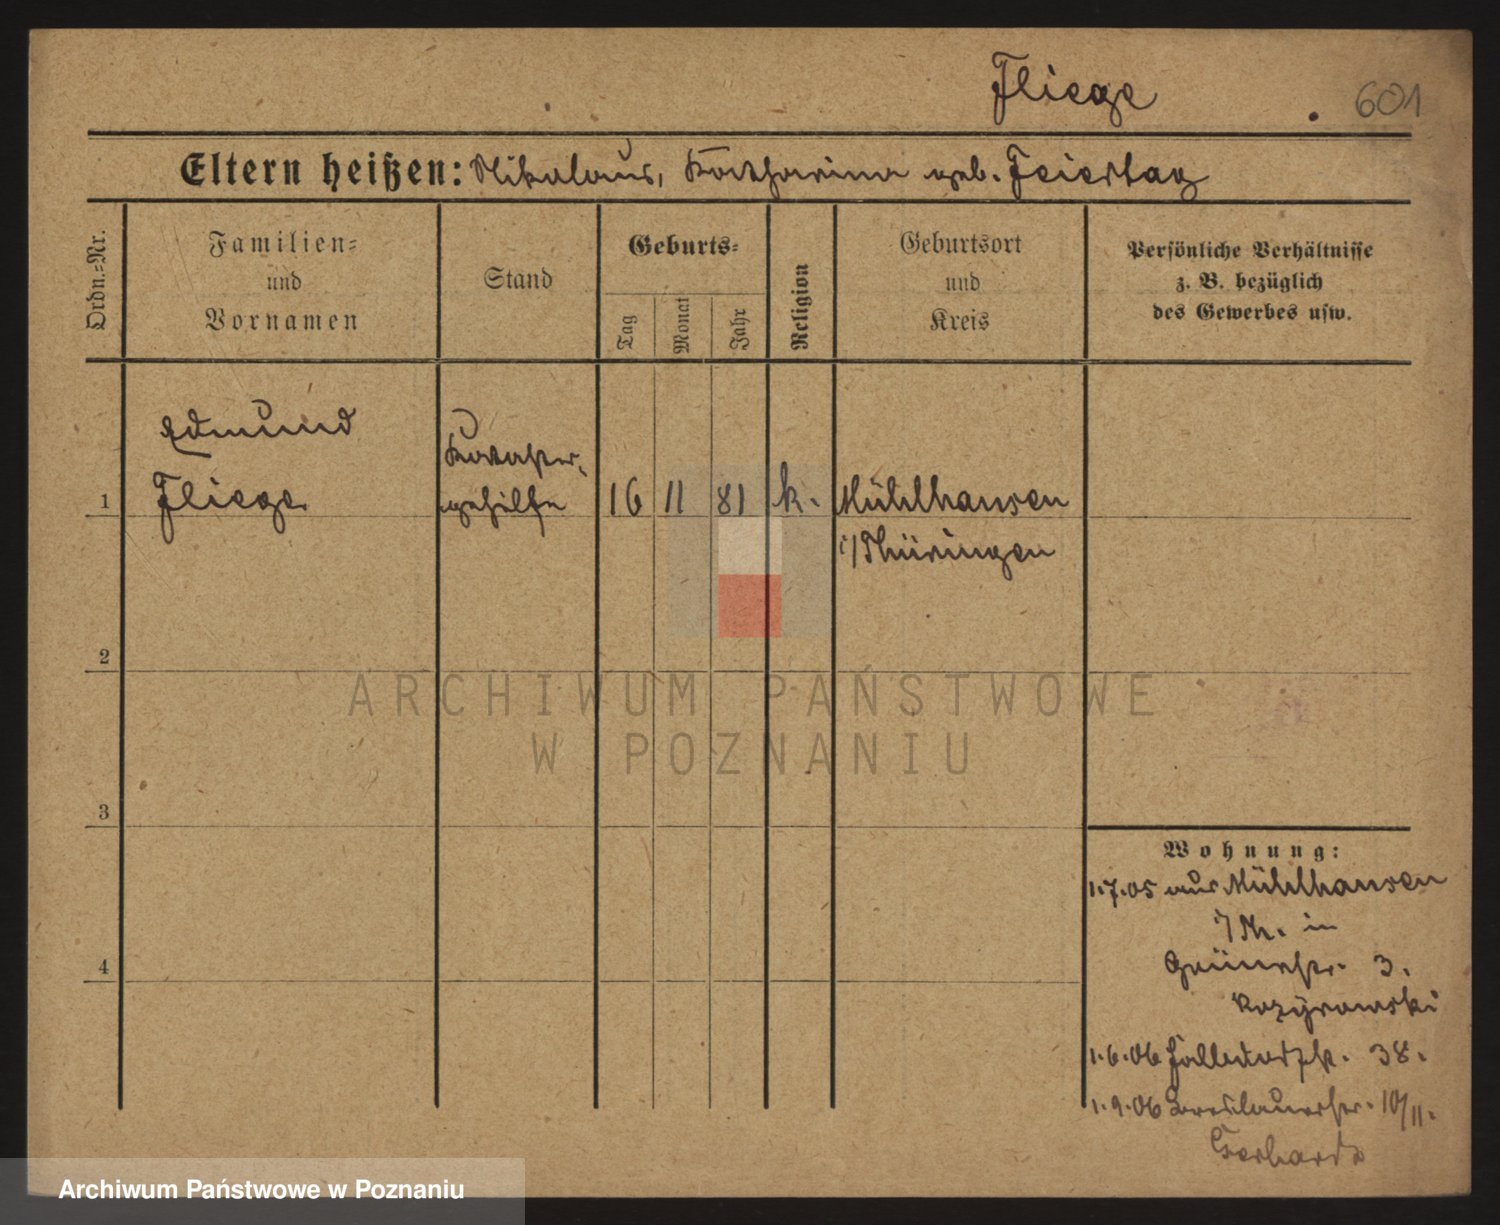 Fliege
601
Eltern heißen: Nikolaus, Katharina geb. Feiertag
Ordn.=Nr.
Familien=
und
Vornamen
Stand
Geburts=
Tag
Monat
Jahr
Religion
Geburtsort
und
Kreis
Persönliche Verhältnisse
z. B. bezüglich
des Gewerbes usw.
Edmund
Kataster-
1 Fliege gehilfe 16 11 81 k. Mühlhausen
i/Thüringen
2
3
4
Wohnung:
1.7.05 aus Mühlhausen
i/Th. in
Grünestr. 3.
1.6.06 38.
1.9.06 Breslauerstr. 10/11.
Gerhardt
ARCHIWUM PAŃSTWOWE
W POZNANIU
Archiwum Państwowe w Poznaniu